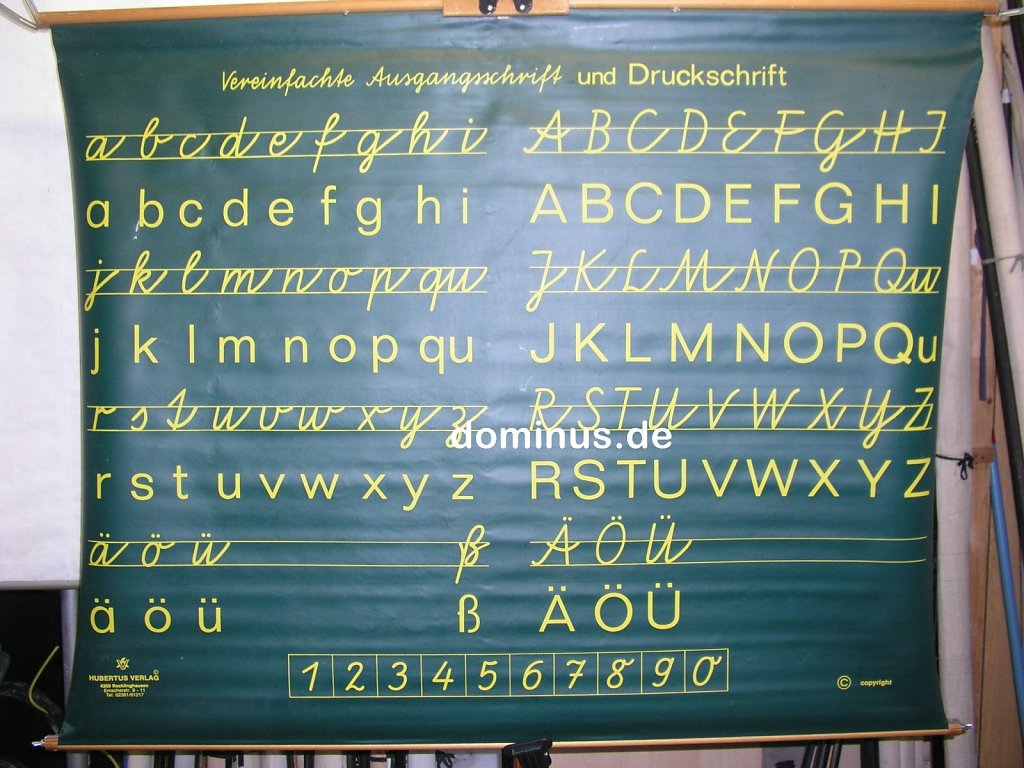 Vereinfachte Ausgangsschrift und Druckschrift
a b c d e f g h i A B C D E F G H I
a b c d e f g h i A B C D E F G H I
j k l m n o p qu J K L M N O P Qu
j k l m n o p qu J K L M N O P Qu
r s t u v w x y z R S T U V W X Y Z
dominus.de
r s t u v w x y z R S T U V W X Y Z
ä ö ü ß Ä Ö Ü
ä ö ü ß Ä Ö Ü
1 2 3 4 5 6 7 8 9 0
HUBERTUS VERLAG ©
4350 Recklinghausen
Emscherstr. 9 - 11
Tel. 02361/61217
© copyright